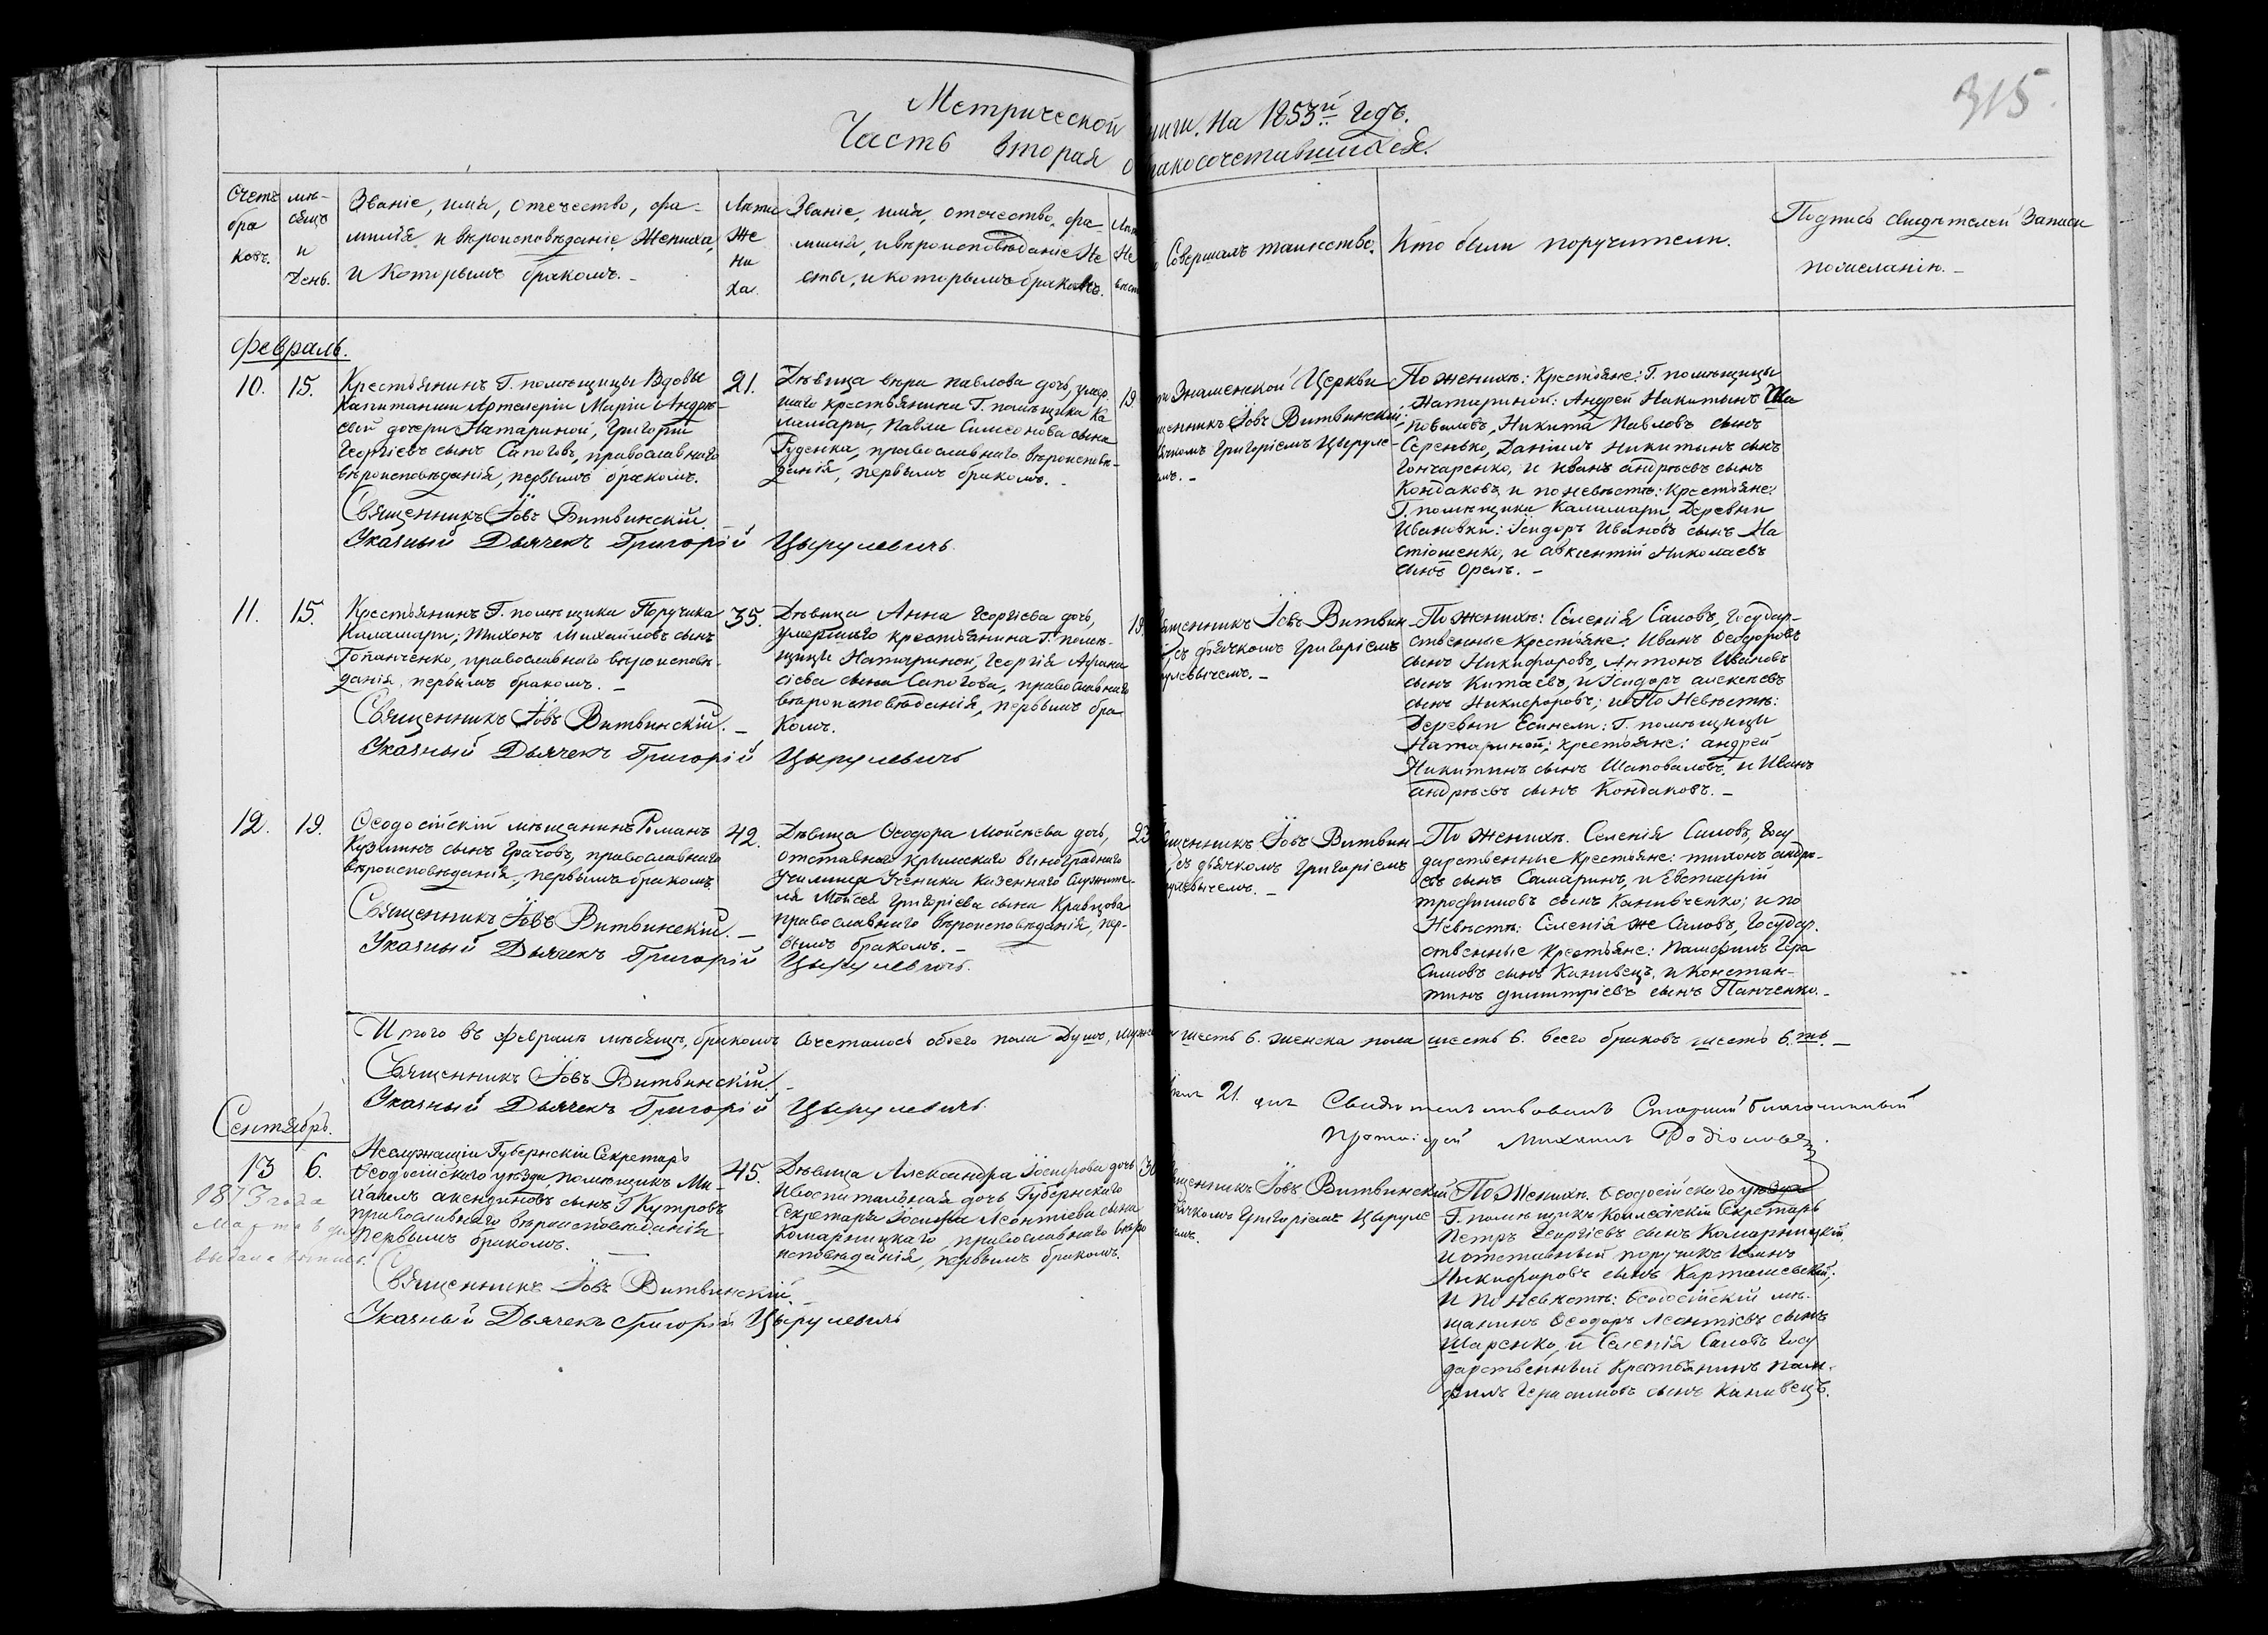 315
Метрической ниги. На 1853й Годъ.
Часть вторая о ракосочетавшихся.
Счетъ
бра
ковъ.
мѣ-
сяцъ
и
День.
Званіе, имя, отечество, фа-
милія, и вѣроисповѣданіе Жениха,
и Которымъ бракомъ. -
Лѣта
Же
ни
ха.
Званіе, имя, отечество, фа-
милія, и вѣроисповѣданіе Не
сты, и которымъ бракомъ.
Не
Совершалъ таинство.
Кто были поручители.
Подпись свидѣтелей Записи
по желанію. -
Февраль.
10. 15.
Крестьянинъ Г. помѣщицы Вдовы
Капитанши Артилеріи Маріи Андрѣ-
евой дочери Натариной, Григорій
Георгіевъ сынъ Сапоговъ, православнаго
вѣроисповѣданія, первымъ бракомъ.
21.
Дѣвица вѣра павлова дочь, умер
шаго крестьянина Г. помѣщика Ка
ламари, Павла Симеонова сына
Руденка, православнаго вѣроисповѣ-
данія, первымъ бракомъ. -
19.
Знаменской Церкви
щенникъ Іовъ Витвинскій;
ячкомъ Григоріемъ Цыруле-
мъ. -
По женихѣ: Крестьяне: Г. помѣщицы
Натариной: Андрей Никитинъ Ша
поваловъ, Никита Павловъ сынъ
Серенько, Даніилъ Никитинъ сынъ
Гончаренко, и иванъ андрѣевъ сынъ
Кондаковъ, и по невѣстѣ: Крестьяне:
Г. помѣщика Каламари Деревни
Ивановки: Ісидоръ Ивановъ сынъ На
стюшенко, и авксентій Николаевъ
сынъ Орелъ. -
Священникъ Іовъ Витвинскій. -
Указный Дьячекъ Григорій Цырулевичъ.
11. 15.
Крестьянинъ Г. помѣщика Поручика
Каламари; Тихонъ Михайловъ сынъ
Гопанченко, православнаго вѣроисповѣ-
данія, первымъ бракомъ. -
35.
Дѣвица Анна Георгіева дочь,
умершаго крестьянина Г. помѣ-
щицы Натариной, Георгія Афана
сіева сына Сапогова, православнаго
вѣроисповѣданія, первымъ бра
комъ.
19.
ященникъ Іовъ Витвин
, съ дьячкомъ Григоріемъ
рулевычемъ. -
По женихѣ: Селенія Саловъ, Государ-
ственные крестьяне: Иванъ Ѳеодоровъ
сынъ Никифоровъ, Антонъ Ивановъ
сынъ Китаевъ, и Ісидоръ алексѣевъ
сынъ Никифоровъ; и По Невѣстѣ:
Деревни Есинели: Г. помѣщицы
Натариной; крестьяне: андрей
Никитинъ сынъ Шаповаловъ, и Иванъ
андрѣевъ сынъ Кондаковъ. -
Священникъ Іовъ Витвинскій. -
Указный Дьячекъ Григорій Цырулевичъ
12. 19.
Ѳеодосійскій мѣщанинъ Романъ
Кузминъ сынъ Грачовъ, православнаго
вѣроисповѣданія, первымъ бракомъ.
42.
Дѣвица Ѳеодора Мойсѣева дочь,
отставнаго Крымскаго винограднаго
училища Ученика Казеннаго Служите-
ля Мойсея Григоріева сына Кравцова
православнаго вѣроисповѣданія, пер-
вымъ бракомъ. -
23
щенникъ Іовъ Витвин
, съ дьячкомъ Григоріемъ
рулевычемъ. -
По женихѣ. Селенія Саловъ, Госу
дарственные крестьяне: тихонъ андрѣ-
евъ сынъ Самаринъ, и Евстафій
трофимовъ сынъ Канивченко; и по
Невѣстѣ: Селенія же Саловъ, Государ.
ственные крестьяне: Памфилъ Гера
симовъ сынъ Канивецъ, и Констан-
тинъ димитріевъ сынъ Панченко. -
Священникъ Іовъ Витвинскій. -
Указный Дьячекъ Григорій Цырулевичъ.
Итого въ Февралѣ мѣсяцѣ, бракомъ Сочеталось обоего пола Душъ, муже шесть 6. женска пола шесть 6. всего браковъ шесть 6.ть. -
Священникъ Іовъ Витвинскій. -
Указный Дьячекъ Григорій Цырулевичъ.
21. дня Свидѣтельствовалъ Старшій благочинный
протоіерей Михаилъ Родіоновъ.
Сентябрь.
13 6.
1873 года
Марта
выдана
Неслужащій Губернскій Секретарь
Ѳеодосійскаго уѣзда, помѣщикъ Ми-
хаилъ акендиновъ сынъ Г Кутровъ
православнаго вѣроисповѣданія
первымъ бракомъ. -
45.
Дѣвица Александра Іосифова дочь
Ивоспитальная дочь Губернскаго
Секретаря Іосифа Леонтіева сына
Комарницкаго, православнаго вѣро
исповѣданія, первымъ бракомъ.
30
щенникъ Іовъ Витвинскій
ячкомъ Григоріемъ Цыруле
емъ.
По Женихѣ. Ѳеодосійскаго уѣзда
Г. помѣщикъ Коллежскій Секретарь
Петръ Георгіевъ сынъ Комарницкій,
и отставный поручикъ Иванъ
Никифоровъ сынъ Карташевскій;
и По невѣстѣ: Ѳеодосійскій мѣ-
щанинъ Ѳеодоръ Леонтіевъ сынъ
Шаренко, и Селенія Саловъ Госу
дарственный Крестьянинъ пам-
филъ Герасимовъ сынъ Канивецъ.
Священникъ Іовъ Витвинскій. -
Указный Дьячекъ Григорій Цырулевичъ